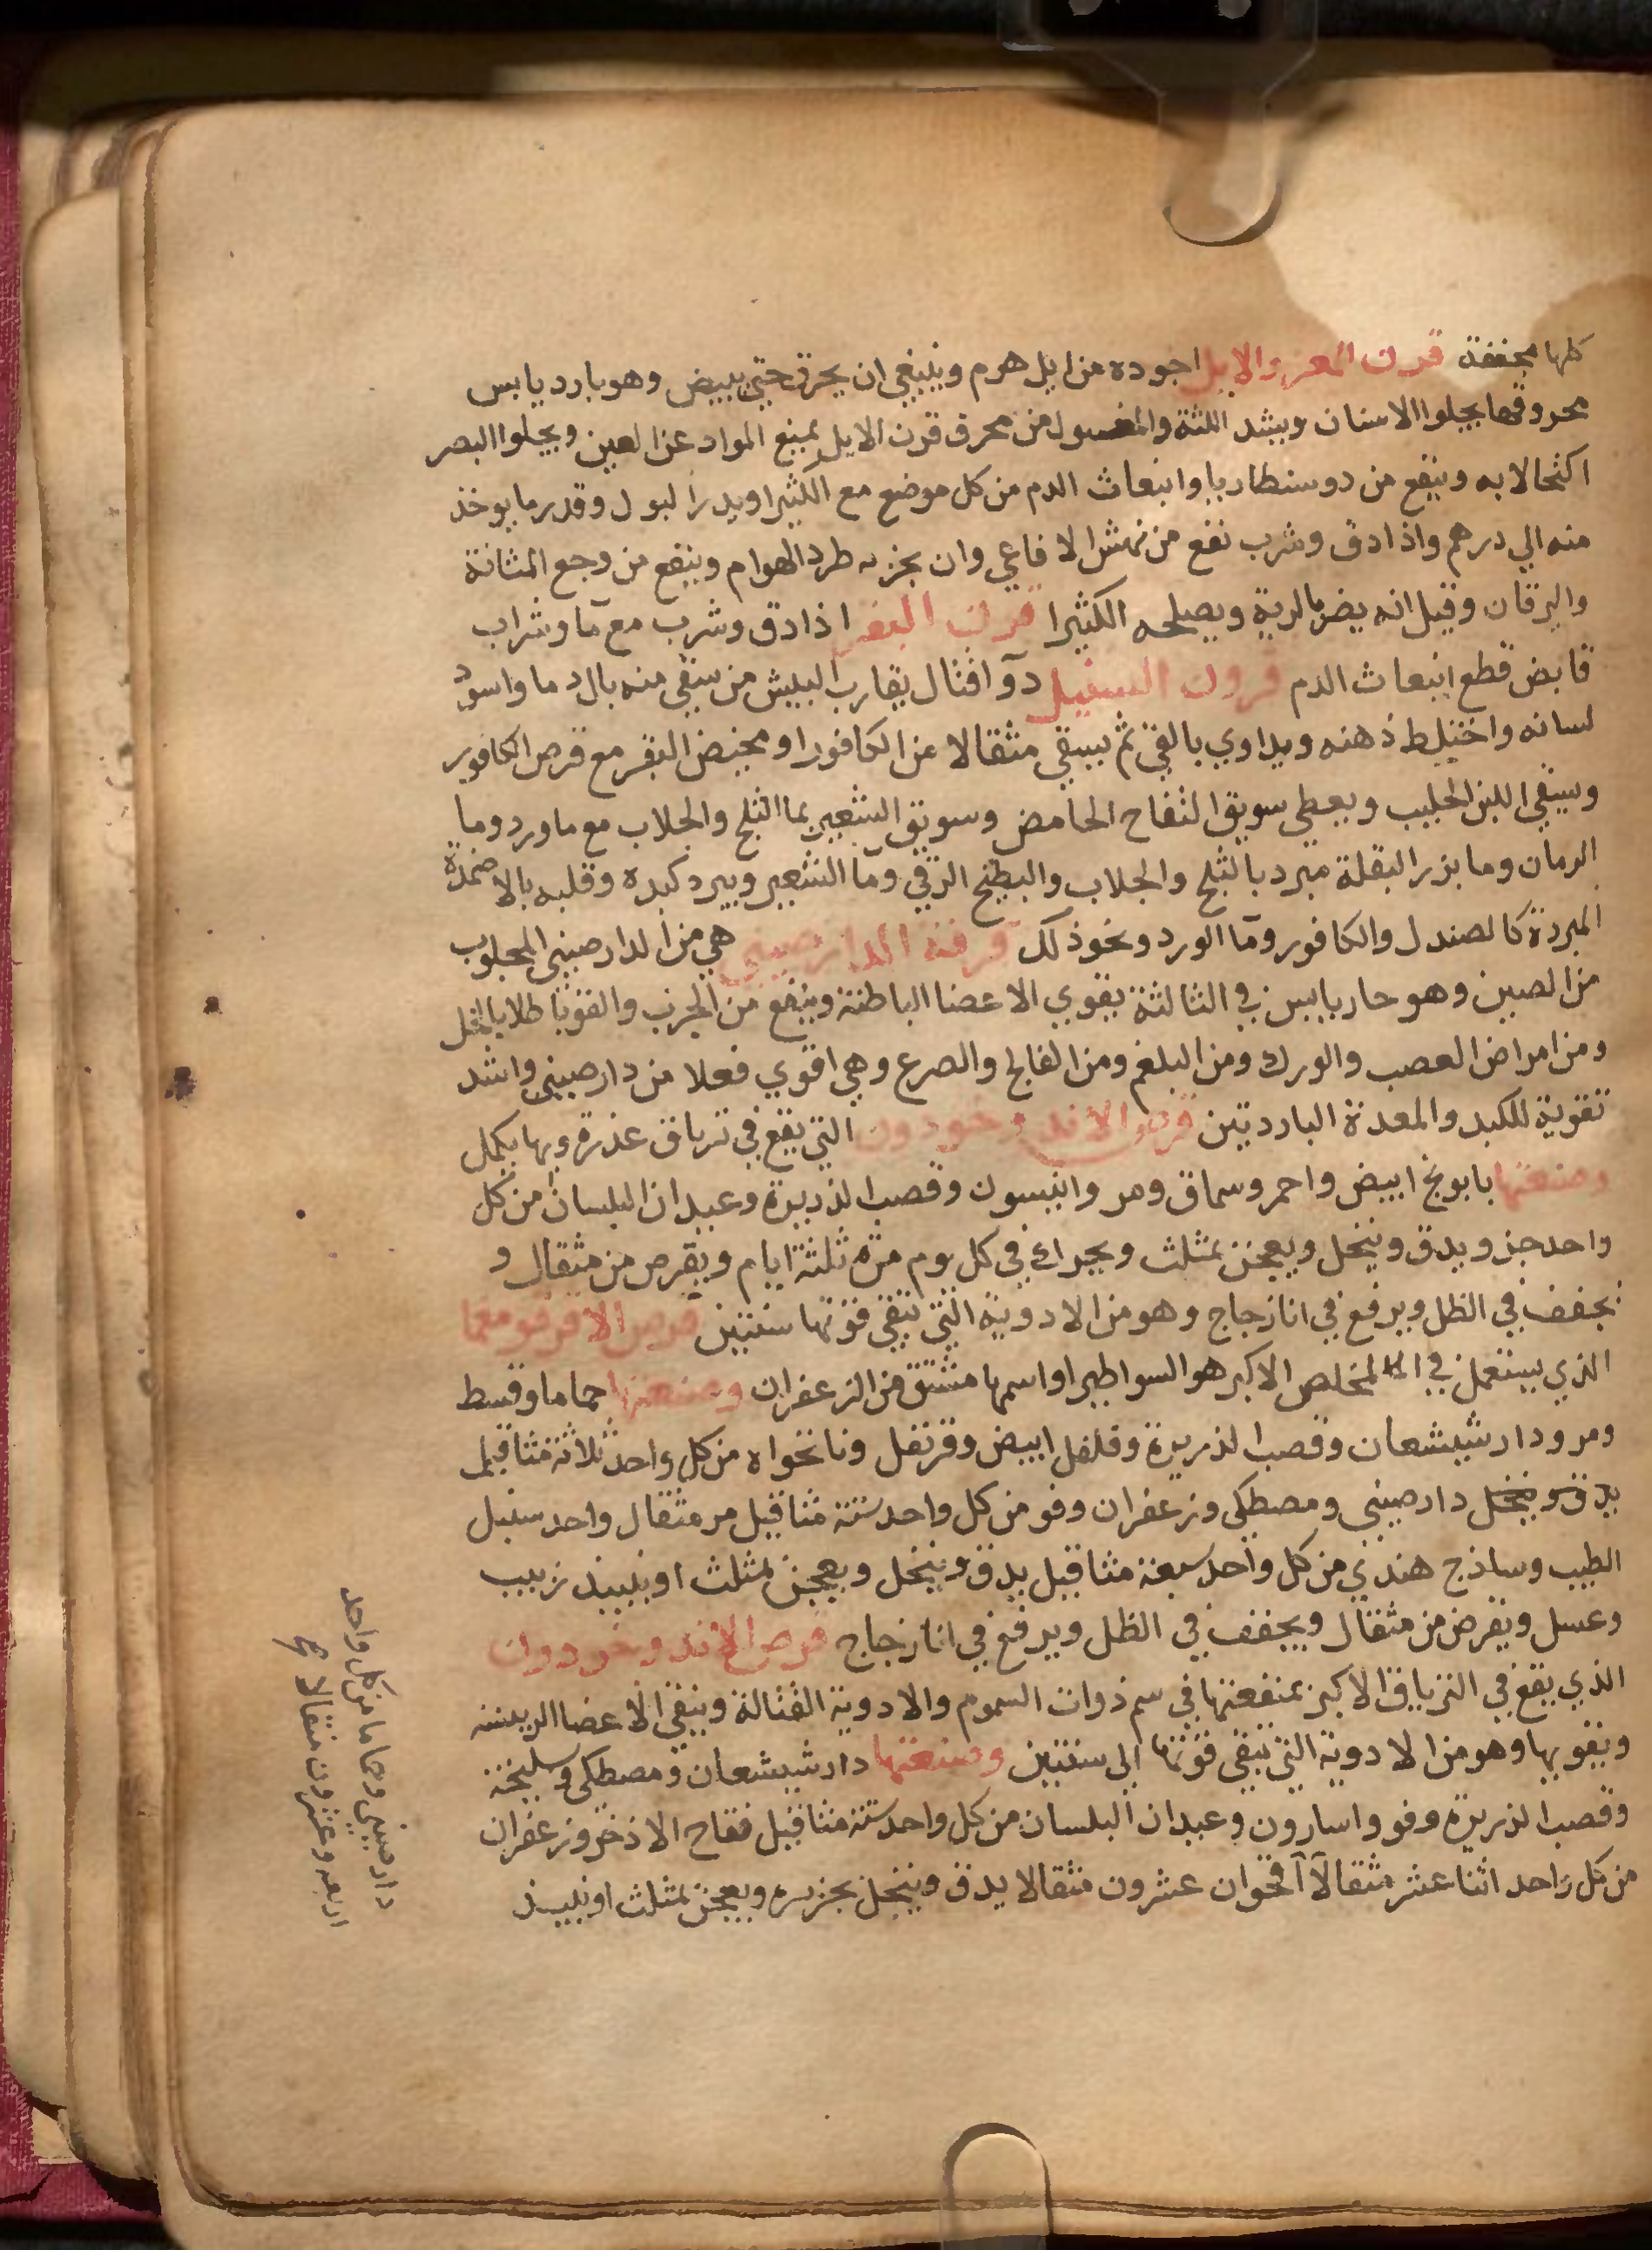 كلها مجففة قرن المعز والايل اجوده من ايل هرم وينبغي ان يحرق حتى يبيض وهو بارد يابس
محروقها يجلوا الاسنان ويشد اللثة والمغسول من محرق قرن الايل يمنع المواد عن العين ويجلوا البصر
اكتحالا به وينفع من دوسنطاريا وانبعاث الدم من كل موضع مع الكثيرا ويدر البول وقدر ما يوخذ
منه الي درهم واذا دق وشرب نفع من نهش الافاعي وان بخر به طرد الهوام وينفع من وجع المثانة
واليرقان وقيل انه يضر بالرية ويصلحه الكثيرا قرن البقر اذا دق وشرب مع مآ وشراب
قابض قطع انبعاث الدم قرون السنبل دوآ قتال يقارب البيش من سقي منه بال دما واسود
لسانه واختلط ذهنه ويداوي بالقي ثم يسقي مثقالا من الكافور او مخيض البقر مع قرص الكافور
ويسقي اللبن الحليب ويعطي سويق التفاح الحامض وسويق الشعير بما الثلج والجلاب مع ما ورد وما
الرمان وما بزر البقلة مبرد بالثلج والجلاب والبطيخ الرقي ومآ الشعير ويبرد كبده وقلبه بالاضمدة
المبردة كالصندل والكافور ومآ الورد ونحو ذلك قرفة الدارصيني هي من الدارصيني المجلوب
من الصين وهو حار يابس في الثالثة يقوي الاعضا الباطنة وينفع من الجرب والقوبا طلا بالخل
ومن امراض العصب والورك ومن البلغم ومن الفالج والصرع وهي اقوي فعلا من دارصيني واشد
تقوية للكبد والمعدة الباردتين قرص الاندروخورون التي يقع في ترياق عذرة وبها يكمل
وصنعتها بابونج ابيض واحمر وسماق ومر وانيسون وقصب الذريرة وعيدان البلسان من كل
واحد جز ويدق وينخل ويعجن بمثلث ويحرك في كل يوم مرة ثلثة ايام ويقرص من مثقال و
يجفف في الظل ويرفع في انا زجاج وهو من الادوية التي تبقي قوتها سنتين قرص الاقرقومغما
الذي يستعمل في المخلص الاكبر هو السواطيرا واسمها مشتق من الزعفران وصنعتها حماما وقسط
ومر ودارشيشعان وقصب الذريرة وفلفل ابيض وقرنفل ونانخواه من كل واحد ثلاثة مثاقيل
يدق وينخل دارصيني ومصطكى وزعفران وفو من كل واحد ستة مثاقيل مر مثقال واحد سنبل
الطيب وساذج هندي من كل واحد سبعة مثاقيل يدق وينخل ويعجن بمثلث او بنبيذ زبيب
وعسل ويقرض من مثقال ويجفف في الظل ويرفع في انا زجاج قرص الاندروخردوان
الذي يقع في الترياق الاكبر بمنفعتها في سم ذوات السموم والادوية القتالة وينقي الاعضا الريسة
ويقويها وهو من الادوية التي تبقي قوتها الى سنتين وصنعتها دارشيشعان ومصطكى وسليخة
وقصب الذريرة وفو واسارون وعيدان البلسان من كل واحد ستة مثاقيل فقاح الاذخر وزعفران
من كل واحد اثنا عشر مثقالا اقحوان عشرون مثقالا يدق وينخل بحريره ويعجن بمثلث او نبيذ
دارصيني وحماما من كل واحد
اربعه وعشرون مثقالا